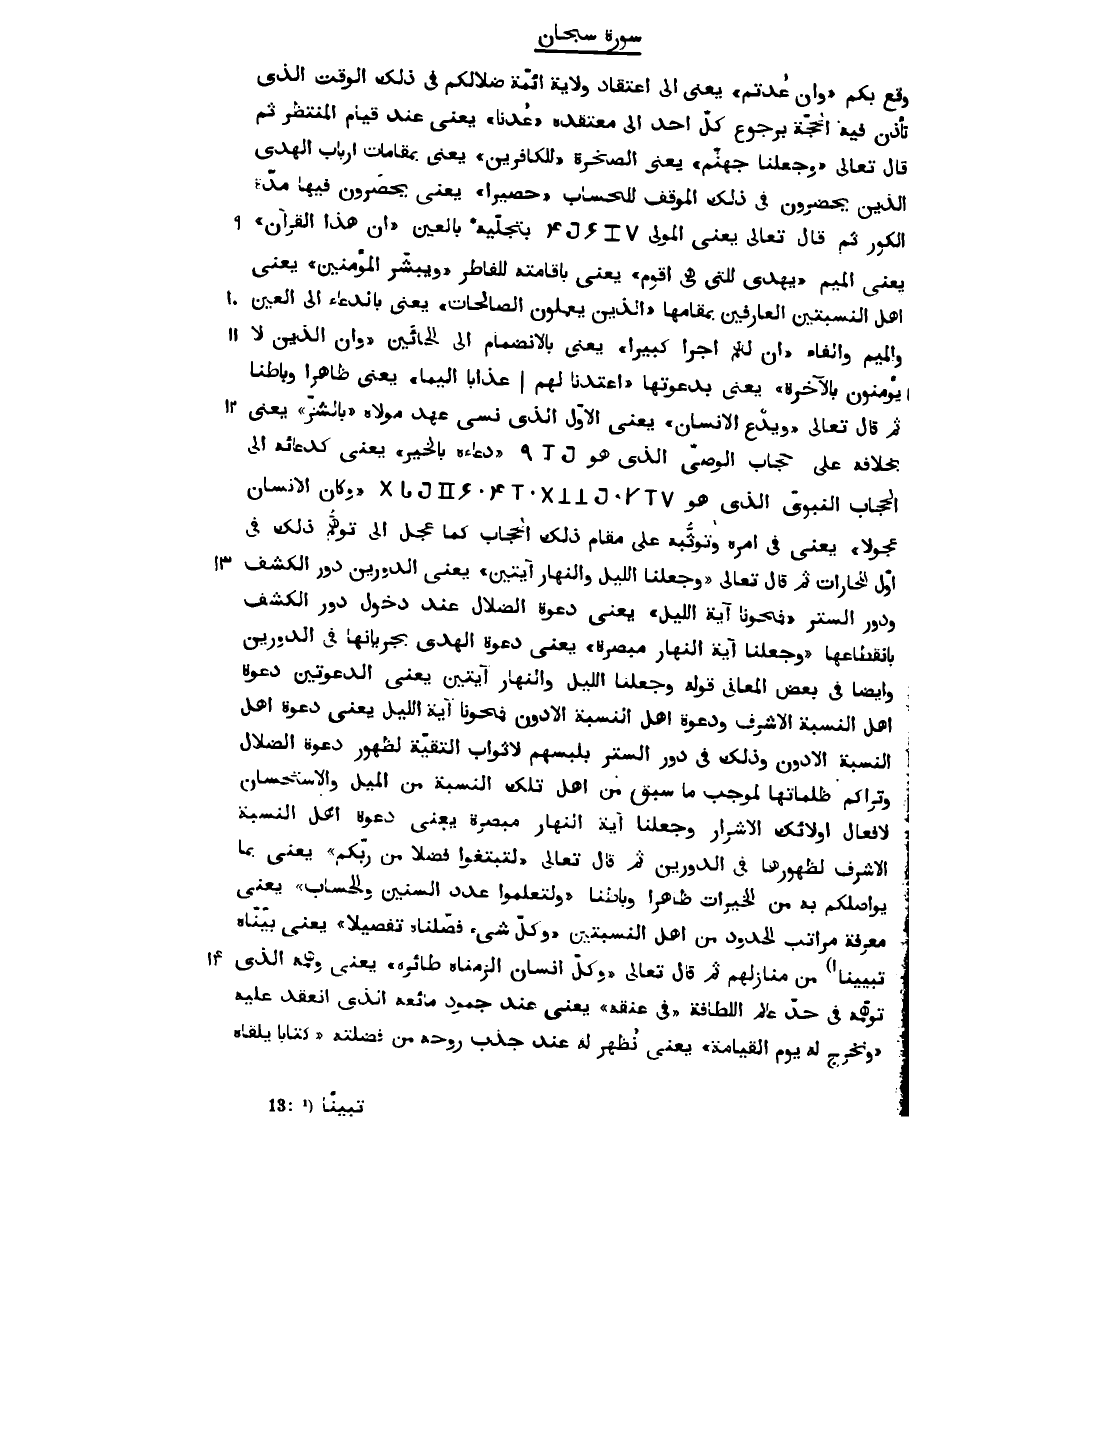 سورة سبحان
وقع بكم «وان عُدتم» يعنى الى اعتقاد ولاية ائمّة ضلالكم فى ذلك الوقت الذى
تأذن فيه الحجّة برجوع كلّ احد الى معتقده «عُدنا» يعنى عند قيام المنتظر ثم
قال تعالى «وجعلنا جهنّم» يعنى الصخرة «للكافرين» يعنى بمقامات ارباب الهدى
الذين يحضرون فى ذلك الموقف للحساب «حصيرا» يعنى يحضرون فيها مدّة
الكور ثم قال تعالى يعنى المولى بتجلّيه بالعين «ان هذا القرآن» ٩
يعنى الميم «يهدى للتى هى اقوم» يعنى باقامته للفاطر «ويبشّر المؤمنين» يعنى
اهل النسبتين العارفين بمقامها «الذين يعملون الصالحات» يعنى بالدعاء الى العين ١٠
والميم والفاء «ان لهم اجرا كبيرا» يعنى بالانضمام الى الحائين «وان الذين لا ١١
يؤمنون بالآخرة» يعنى بدعوتها «اعتدنا لهم | عذابا اليما» يعنى ظاهرا وباطنا
ثم قال تعالى «ويدْع الانسان» يعنى الاوّل الذى نسى عهد مولاه «بالشرّ» يعنى ١٢
بخلافه على حجاب الوصىّ الذى هو «دعاءه بالخير» يعنى كدعائه الى
الحجاب النبوىّ الذى هو «وكان الانسان
عجولا» يعنى فى امره وتوثُّبه على مقام ذلك الحجاب كما عجل الى توهُّم ذلك فى
اوّل الخارات ثم قال تعالى «وجعلنا الليل والنهار آيتين» يعنى الدورين دور الكشف ١٣
ودور الستر «فمحونا آية الليل» يعنى دعوة الضلال عند دخول دور الكشف
بانقطاعها «وجعلنا آية النهار مبصرة» يعنى دعوة الهدى بجريانها فى الدورين
وايضا فى بعض المعانى قوله وجعلنا الليل والنهار آيتين يعنى الدعوتين دعوة
اهل النسبة الاشرف ودعوة اهل النسبة الادون فمحونا آية الليل يعنى دعوة اهل
النسبة الادون وذلك فى دور الستر بلبسهم لاثواب التقيّة لظهور دعوة الضلال
وتراكم ظلماتها لموجب ما سبق من اهل تلك النسبة من الميل والاستحسان
لافعال اولائك الاشرار وجعلنا آية النهار مبصرة يعنى دعوة اهل النسبة
الاشرف لظهورها فى الدورين ثم قال تعالى «لتبتغوا فضلا من ربّكم» يعنى بما
يواصلكم به من الخيرات ظاهرا وباطنا «ولتعلموا عدد السنين والحساب» يعنى
معرفة مراتب الحدود من اهل النسبتين «وكلّ شىء فصّلناه تفصيلا» يعنى بيّنّاه
تبيينا¹) من منازلهم ثم قال تعالى «وكلّ انسان الزمناه طائره» يعنى وهمه الذى ١۴
توهّمه فى حدّ عالم اللطافة «فى عنقه» يعنى عند جمود مائعه الذى انعقد عليه
«ونخرج له يوم القيامة» يعنى نُظهر له عند جذب روحه من فضلته «كتابا يلقاه
13: ¹) تبيينًا